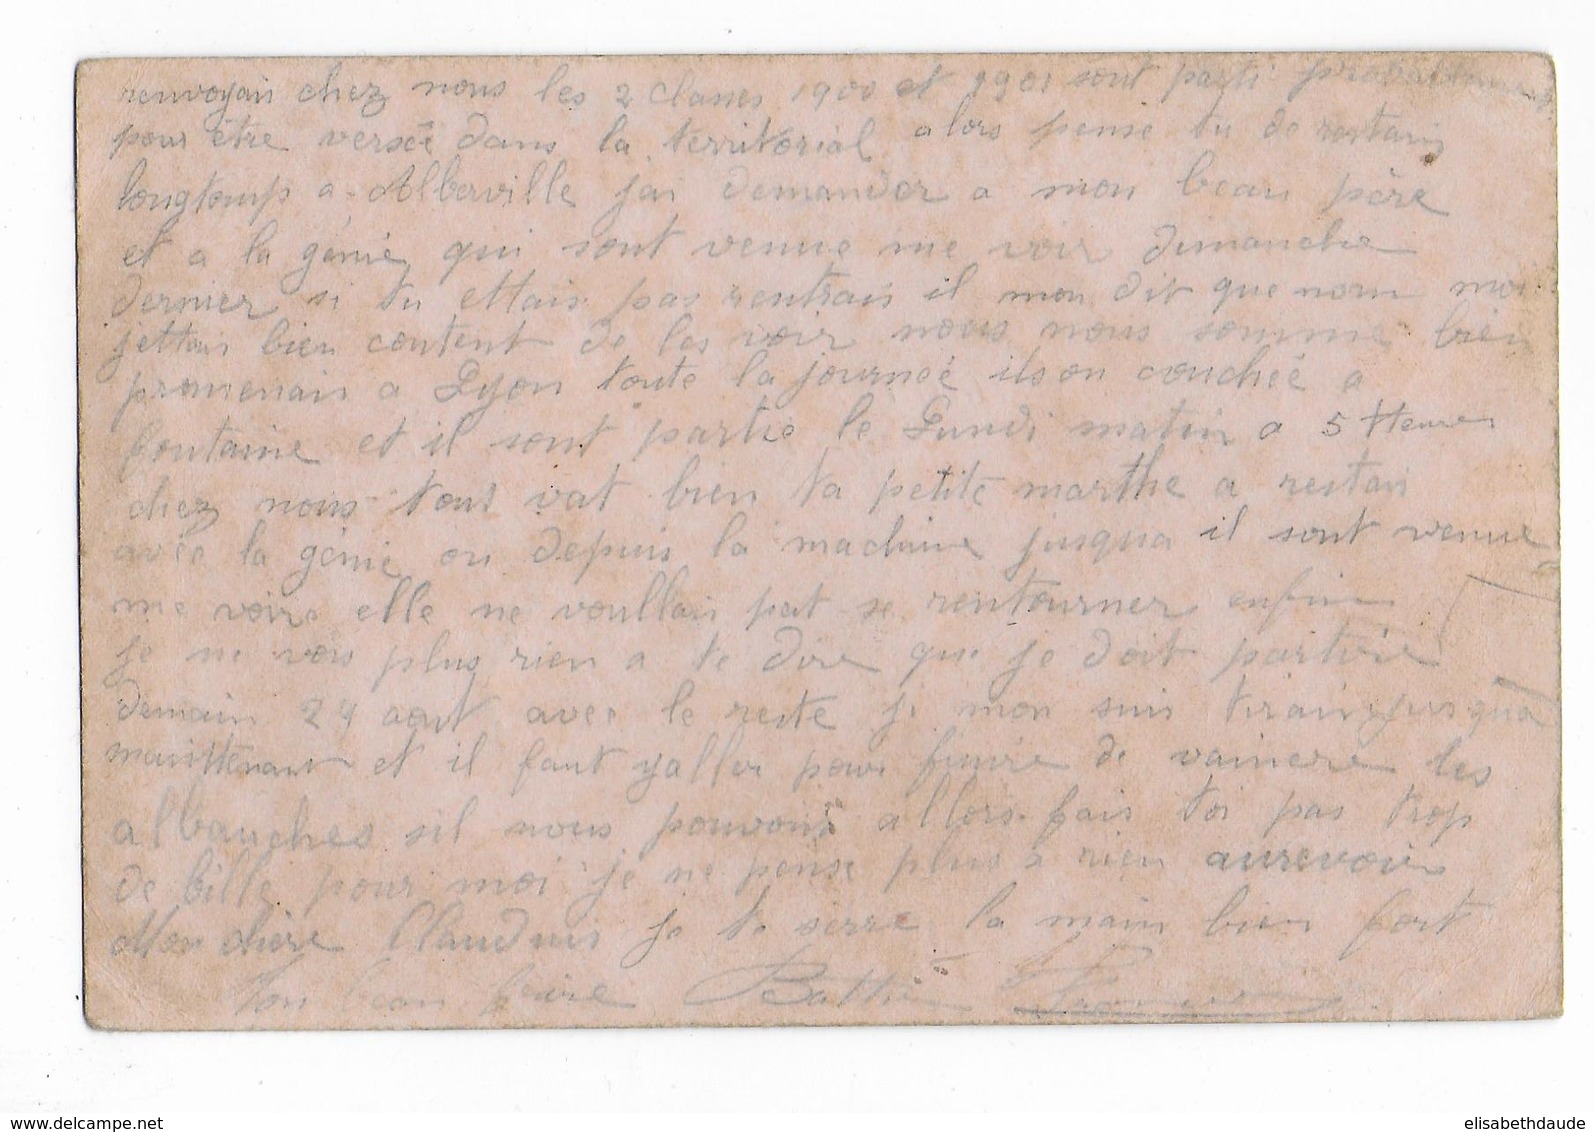 renvoyais chez nous les 2 classes 1900 et 1901 sont parti probablement
pour être versée dans la territorial alors pense tu de restais
longtemp a Alberville jai demander a mon beau père
et a la génie qui sont venue me voir dimanche
dernier si tu ettais pas rentrais il mon dit que nom moi
jettais bien content de les voir nous nous somme bien
promenais a Lyon toute la journeé ils on couchée a
fontaine et il sont partie le Lundi matin a 5 Heures
chez nous tout vat bien ta petite marthe a restais
avec la génie on depuis la machine jusqua il sont venue
me voire elle ne voullais pat se rentourner enfin
je ne vois plus rien a te dire que je doit partire
demain 24 aout avec le reste je mon suis tirais jusqua
mainttenant et il faut yaller pour finire de vaincre les
albauches sil nous pouvons allors fais toi pas trop
de bille pour moi je ne pense plus a rien aurevoir
Mon chere Claudius je te serre la main bien fort
Ton beau frere Batthi
www.delcampe.net
elisabethdaude